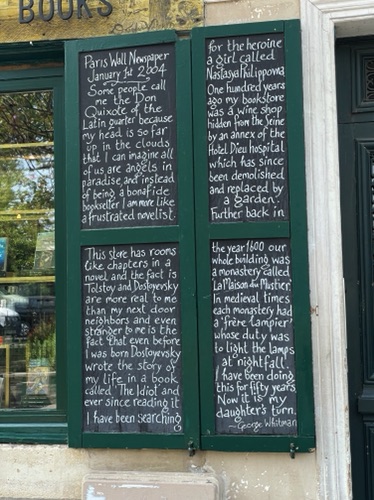 BOOKS
Paris Wall Newspaper
January 1st 2004
Some people call
me the Don
Quixote of the
Latin Quarter because
my head is so far
up in the clouds
that I can imagine all
of us are angels in
paradise, and instead
of being a bonafide
bookseller I am more like
a frustrated novelist.
This store has rooms
like chapters in a
novel and the fact is
Tolstoy and Dostoyevsky
are more real to me
than my next door
neighbors and even
stranger to me is the
fact that even before
I was born Dostoyevsky
wrote the story of
my life in a book
called 'The Idiot' and
ever since reading it
I have been searching
for the heroine
a girl called
Nastasya Filippovna
One hundred years
ago my bookstore
was a wine shop
hidden from the Seine
by an annex of the
Hotel Dieu hospital
which has since
been demolished
and replaced by
a garden.
Further back in
the year 1600 our
whole building was
a monastery called
'La Maison du Mustier'
In medieval times
each monastery had
a 'frère lampier'
whose duty was
to light the lamps
at nightfall.
I have been doing
this for fifty years
Now it is my
daughter's turn.
~ George Whitman